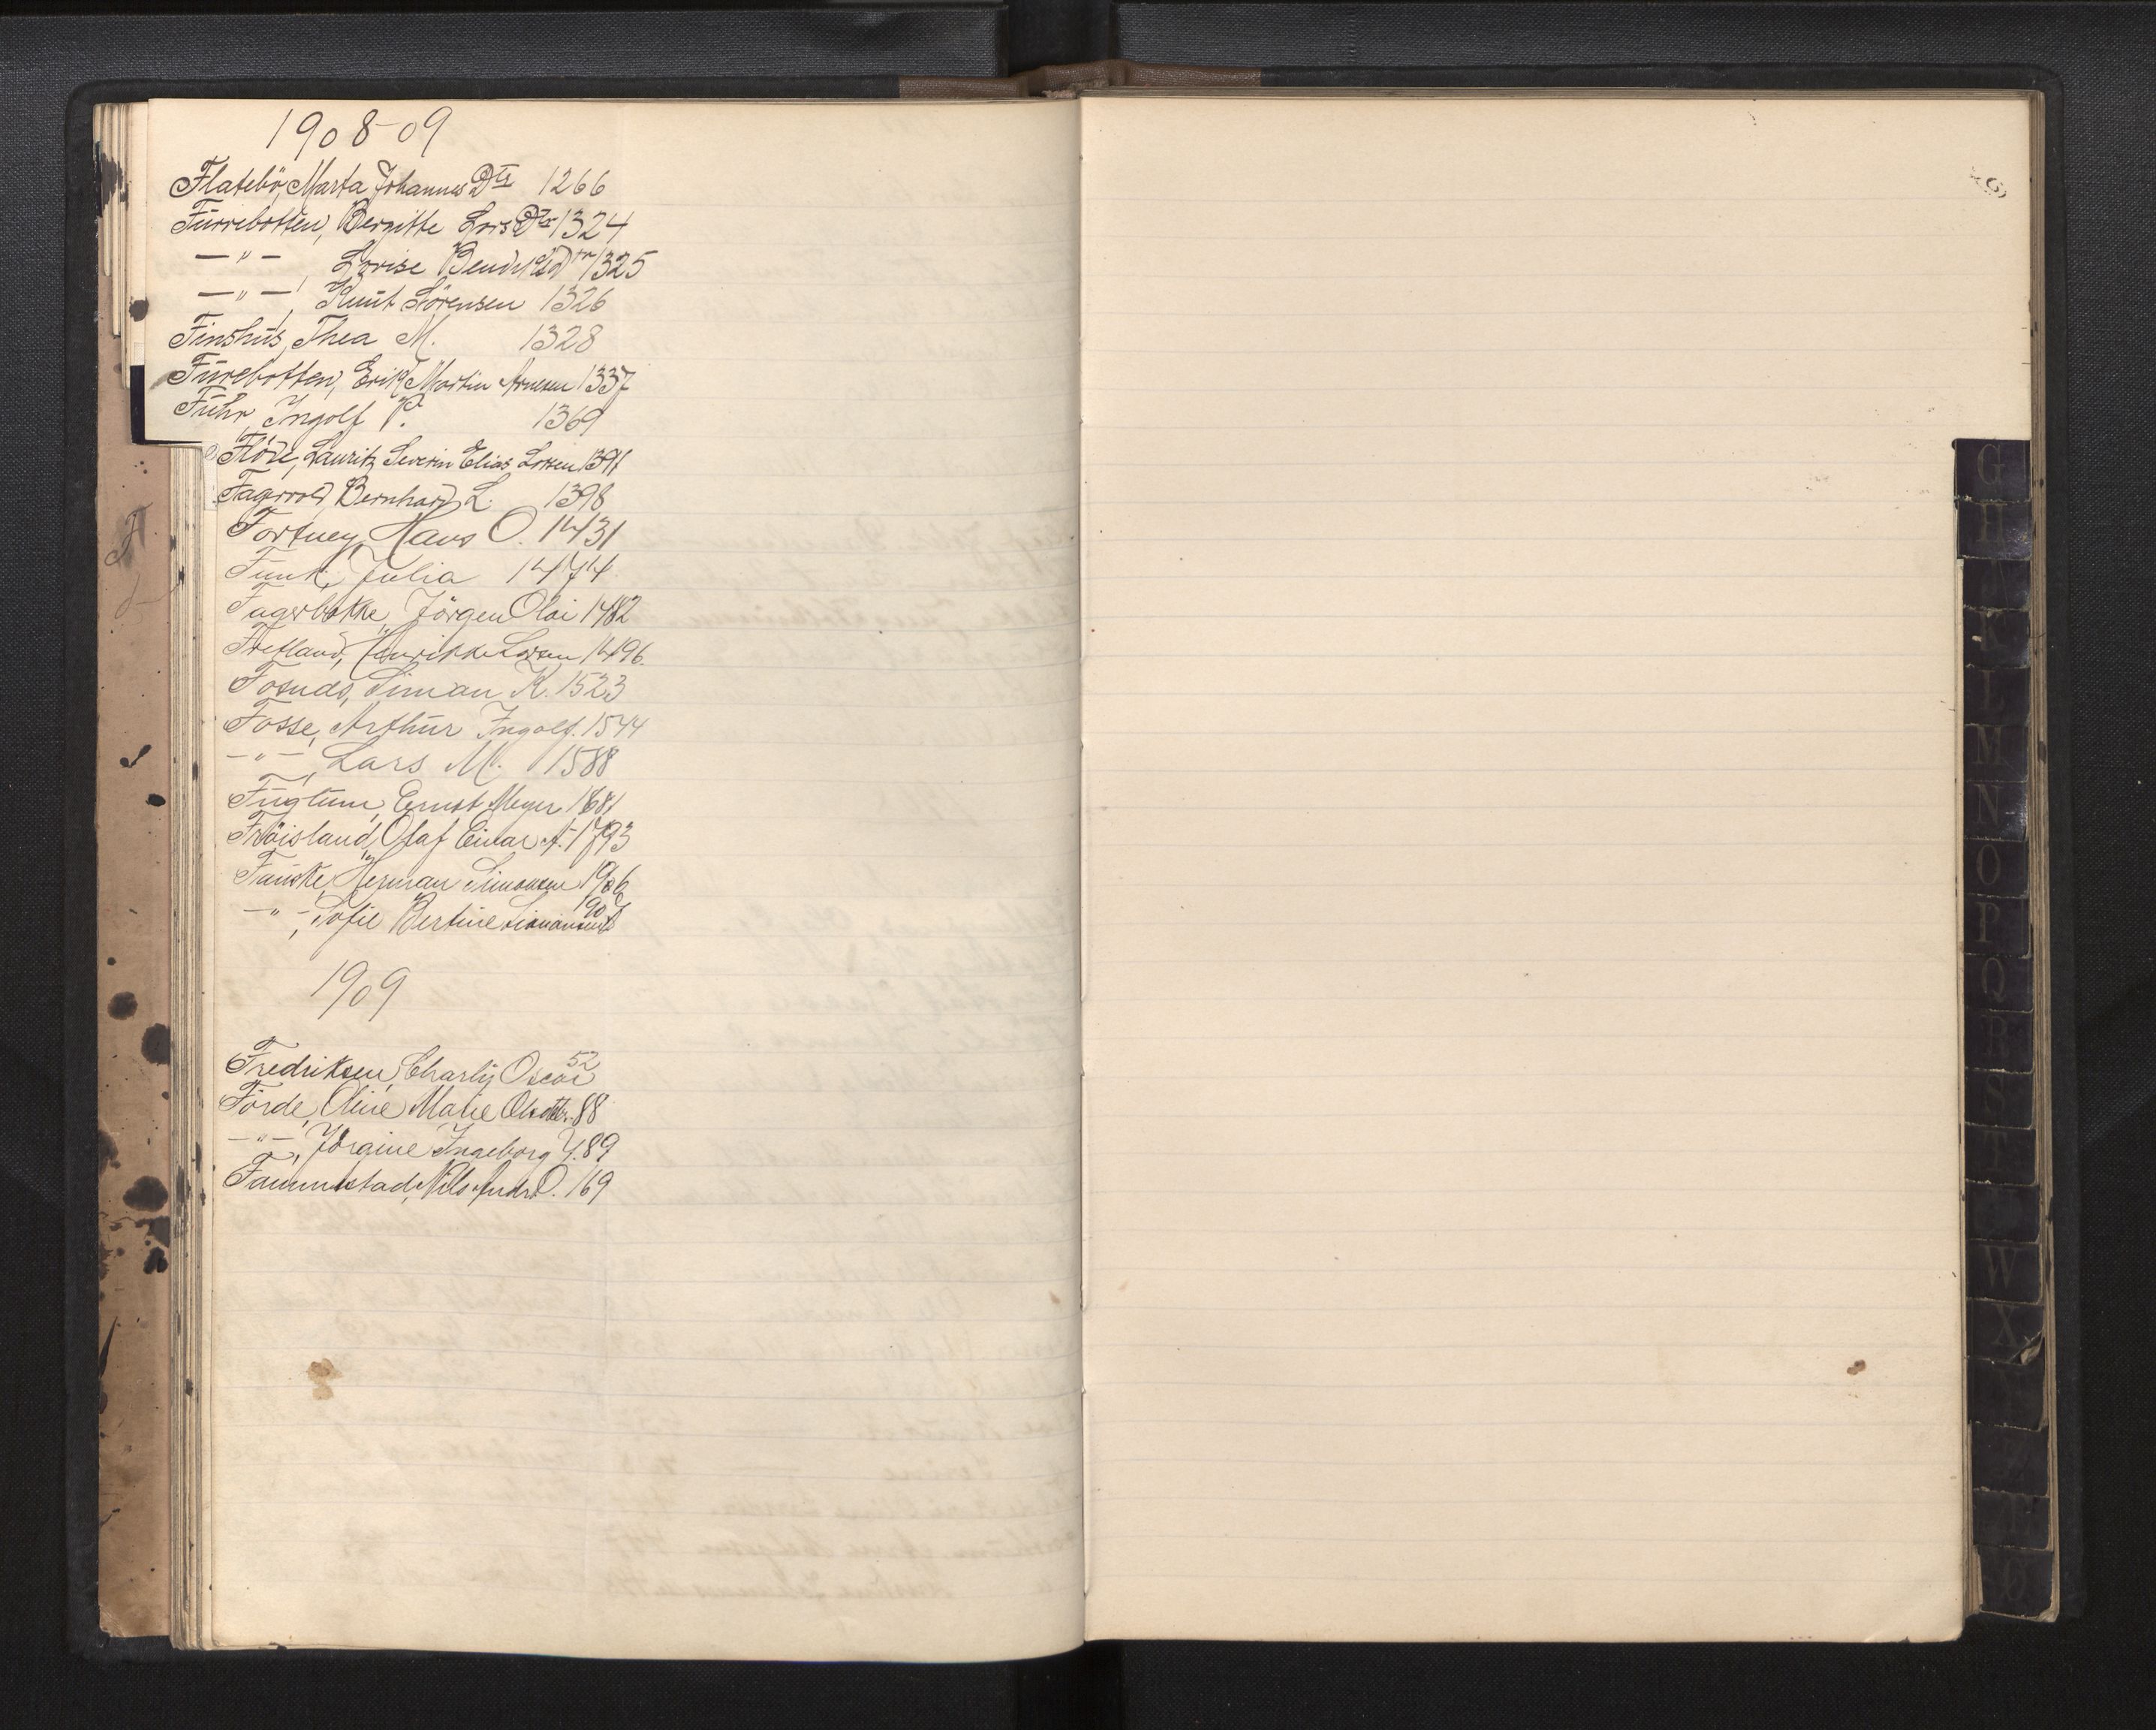 1908-09
Flatebö, Marta Johannes Dtr 1266
Furrebotten, Bergitte Lars Dtr 1324
—"—, Lovise Bendrik Dtr 1325
—"—, Knut Sörensen 1326
Finshus, Thea M. 1328
Furebotten, Erik Martin Arnesen 1337
Führ, Ingolf P. 1369
Flöde, Lauritz Severin Elias Larsen 1391
Fagervold, Bernhard L. 1398
Fortney, Hans O. 1431
Funk, Julia 1474
Fagerbakke, Jörgen Olai 1482
Fretland, Henrikke Larsen 1496.
Simon K. 1523
Fosse, Arthur Ingolf. 1544
—"—, Lars M. 1588
Fuglum, Ernst Meyer 1681
Fröisland, Olaf Einar A. 1793
Fauske, Herman Simonsen 1906
—"—, Sofie Bertine Simonsen 1907
1909
Fredriksen, Charly Oscar 52
Förde, Oline Marie Olsdtr. 88
—"—, Jörgine Ingeborg J. 89
Fammestad, Nils Andr. O. 169
F
G
H
K
L
M
N
O
P
Q
R
S
T
W
X
Z
Ö